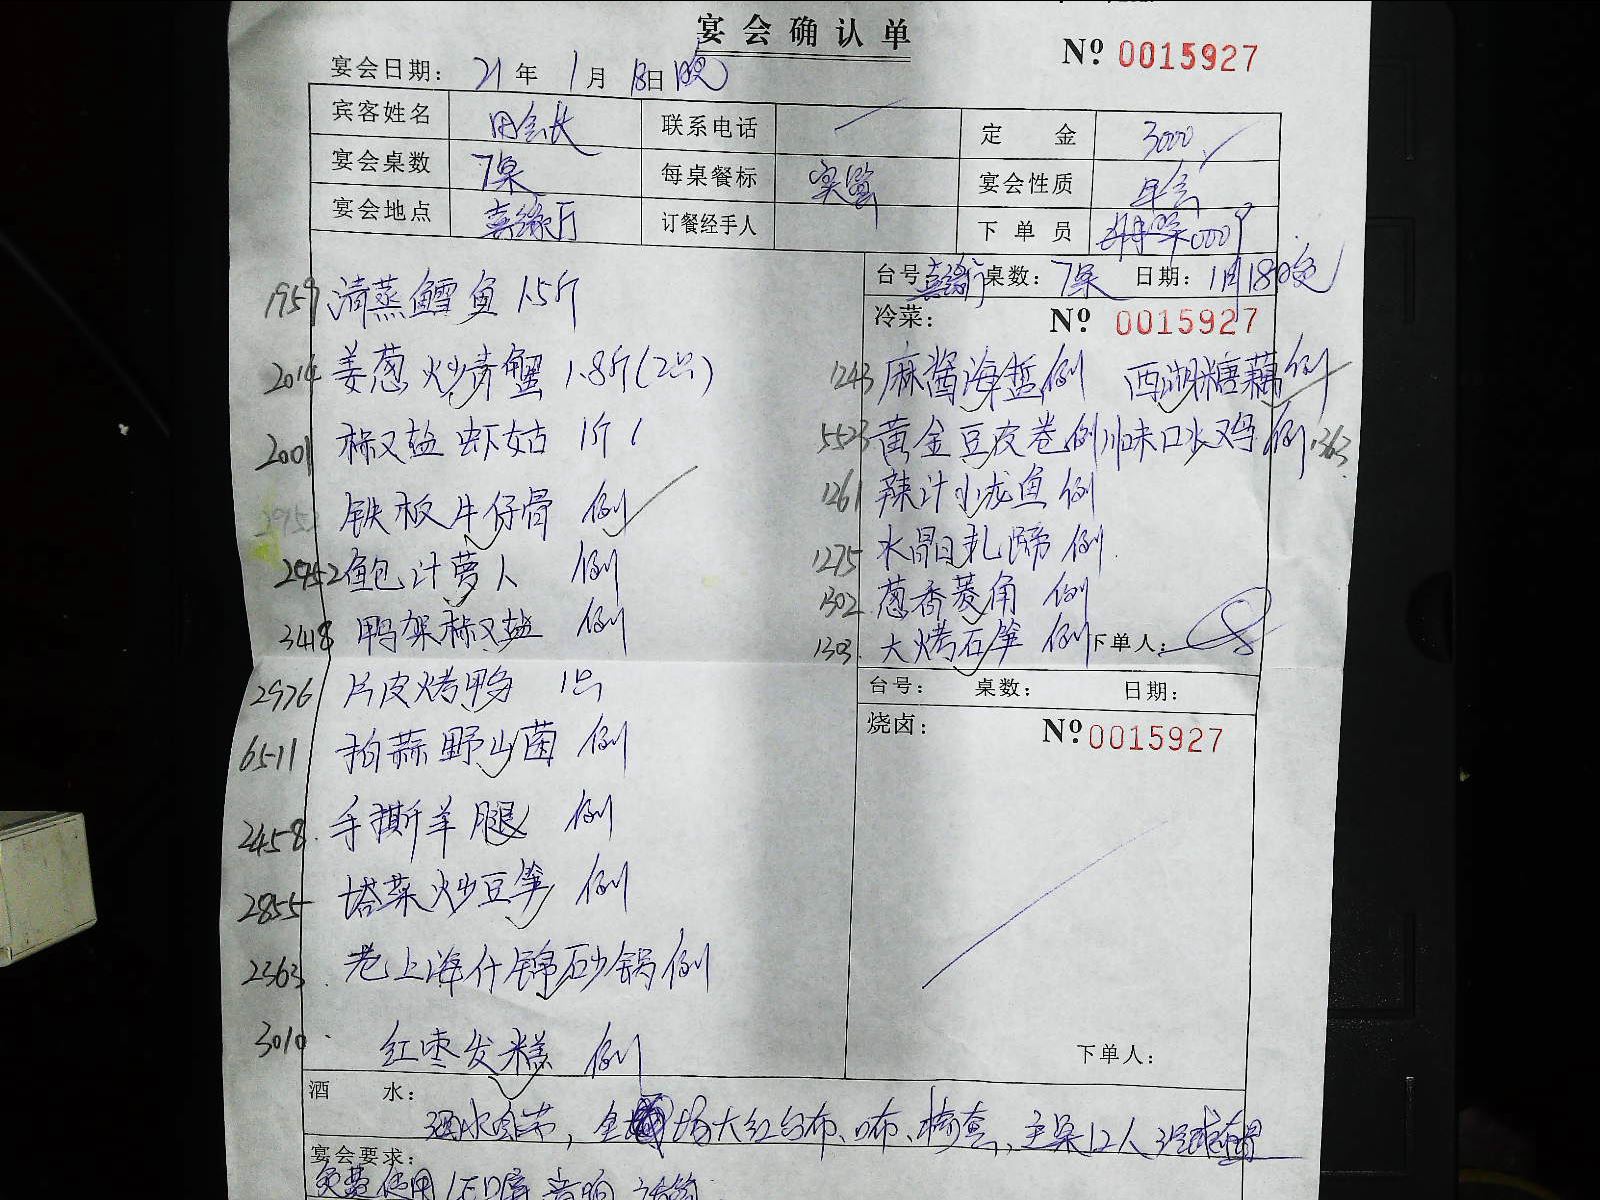 宴会确认单
№ 0015927
宴会日期: 21年 1月 18日 晚
宾客姓名 周会长 联系电话 定 金 3000
宴会桌数 7桌 每桌餐标 实算 宴会性质 年会
宴会地点 喜缘厅 订餐经手人 下单员
台号: 喜缘厅 桌数: 7桌 日期: 1月18日晚
冷菜: № 0015927
1959 清蒸鳕鱼 1.5斤
2014 姜葱炒青蟹 1.8斤(2只)
2001 椒盐虾姑 1斤
铁板牛仔骨 例
2952 鲍汁萝人 例
3418 鸭架椒盐 例
2976 片皮烤鸭 1只
6511 拍蒜野山菌 例
2458 手撕羊腿 例
2855 塔菜炒豆笋 例
2363 老上海什锦砂锅 例
3010 红枣发糕 例
1243 麻酱海蜇 例 西湖糖藕 例
5523 黄金豆皮卷 例 川味口水鸡 例 1363
1261 辣汁小龙鱼 例
1275 水晶扎蹄 例
1302 葱香菱角 例
1303 大烤石笋 例 下单人:
台号: 桌数: 日期:
烧卤: № 0015927
下单人:
酒 水: 酒水自带,全场大红台布、口布、椅套,主桌12人
宴会要求:
免费使用LED屏 音响 话筒